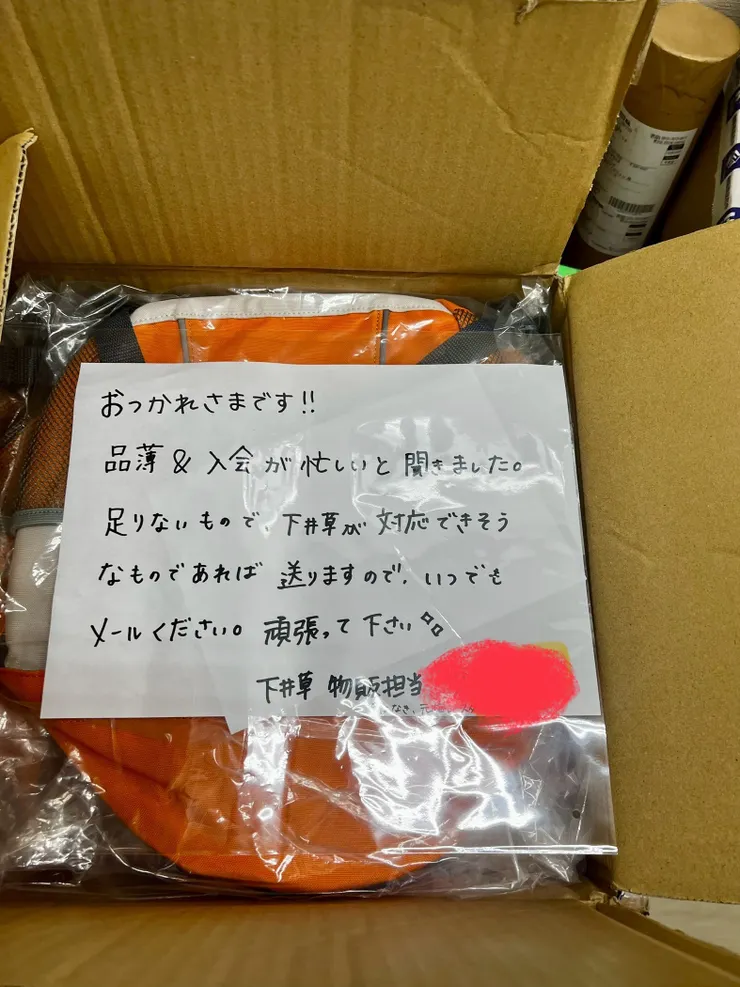 おつかれさまです!!
品薄 & 入会が忙しいと聞きました。
足りないもので、下井草が対応できそう
なものであれば送りますので、いつでも
メールください。頑張って下さい
下井草 物販担当